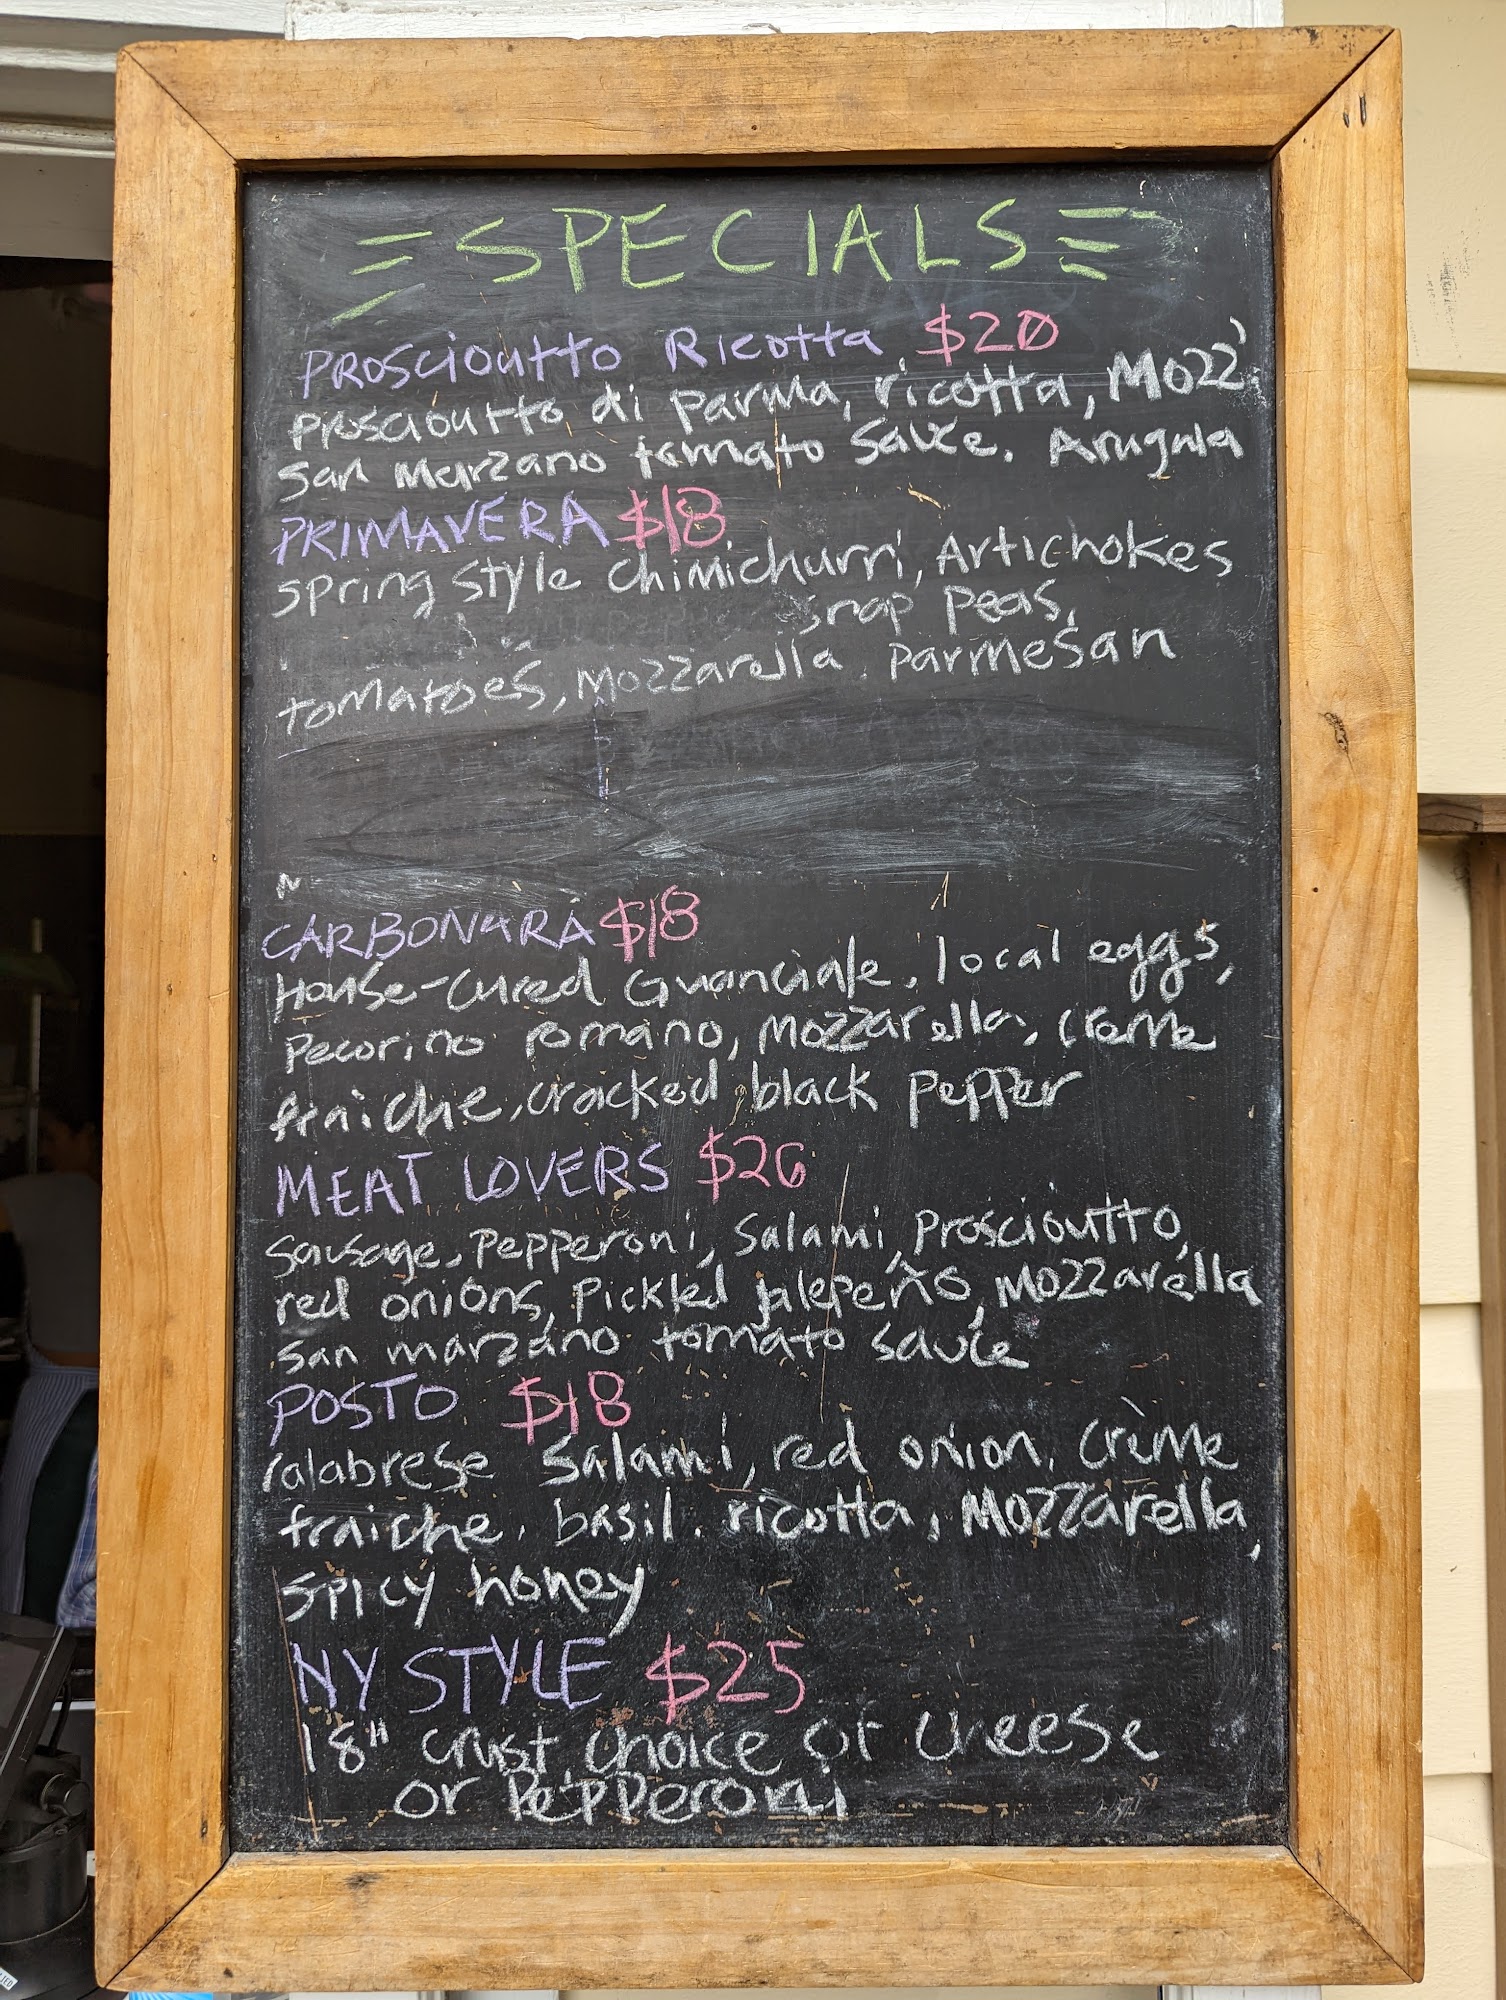 SPECIALS
PROSCIOUTTO RICOTTA $20
Proscioutto di parma, ricotta, Mozz
San Marzano tomato sauce. Arugula
PRIMAVERA $18
Spring style chimichurri, Artichokes
snap peas,
tomatoes, Mozzarella. Parmesan
CARBONARA $18
House-cured Guanciale, local eggs,
Pecorino romano, Mozzarella, creme
fraiche, cracked black pepper
MEAT LOVERS $26
Sausage, Pepperoni, Salami, Proscioutto,
red onions, Pickled jalepeños, Mozzarella
San marzano tomato sauce
POSTO $18
Calabrese Salami, red onion, crème
fraiche, basil. ricotta, Mozzarella,
Spicy honey
NY STYLE $25
18" crust, choice of cheese
or Pepperoni